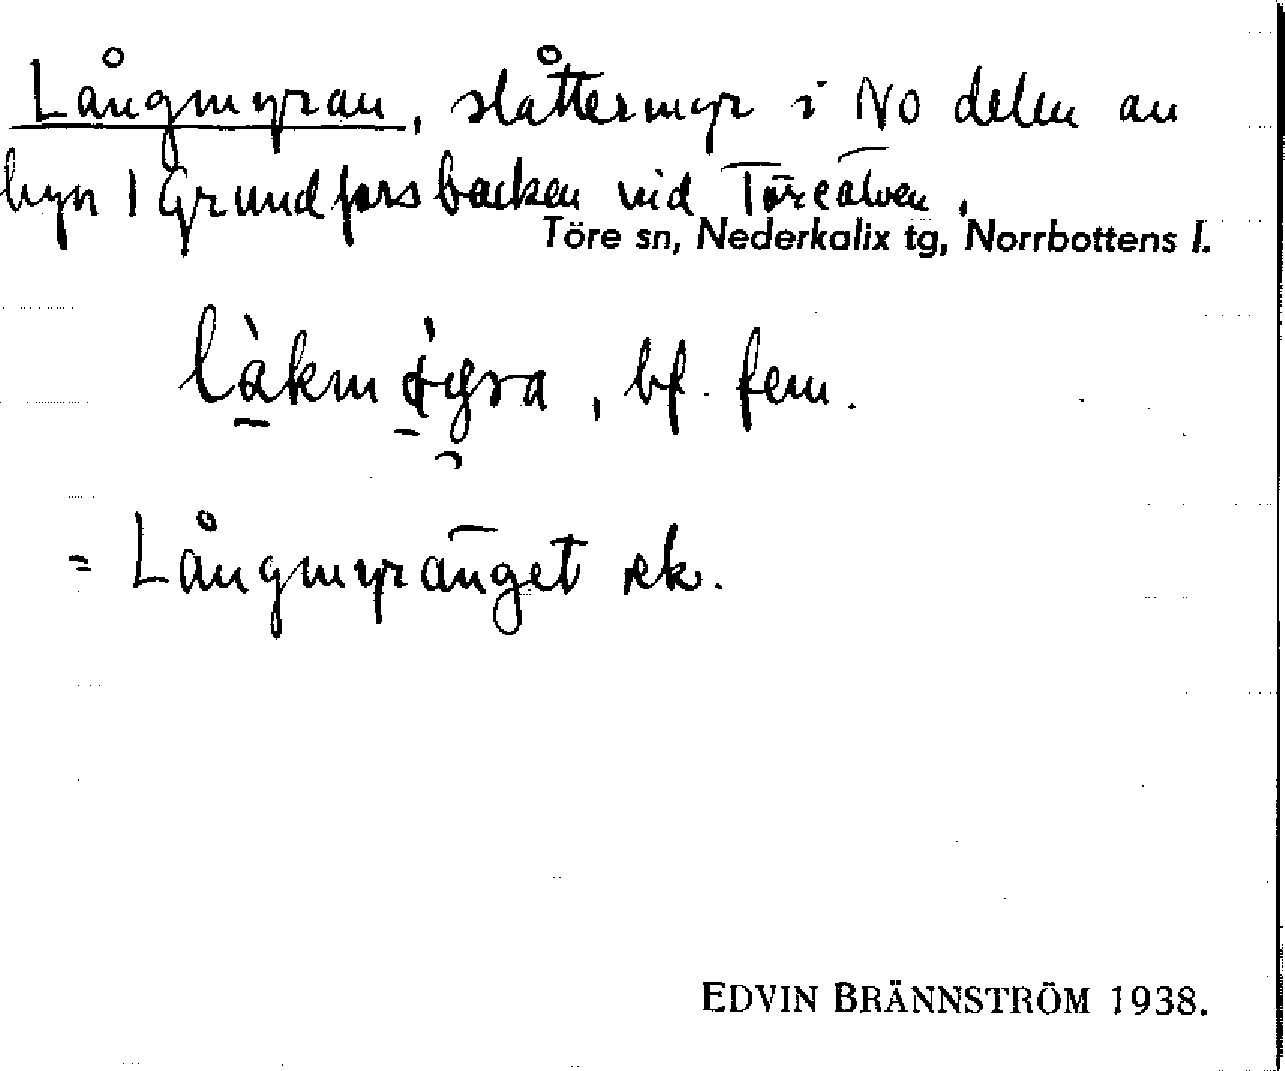 Långmyran, slåttermyr i NO delen av
byn 1 Grundforsbacken vid Töreälven.
Töre sn, Nederkalix tg, Norrbottens l.
bf. fem.
= Långmyränget ek.
EDVIN BRÄNNSTRÖM 1938.